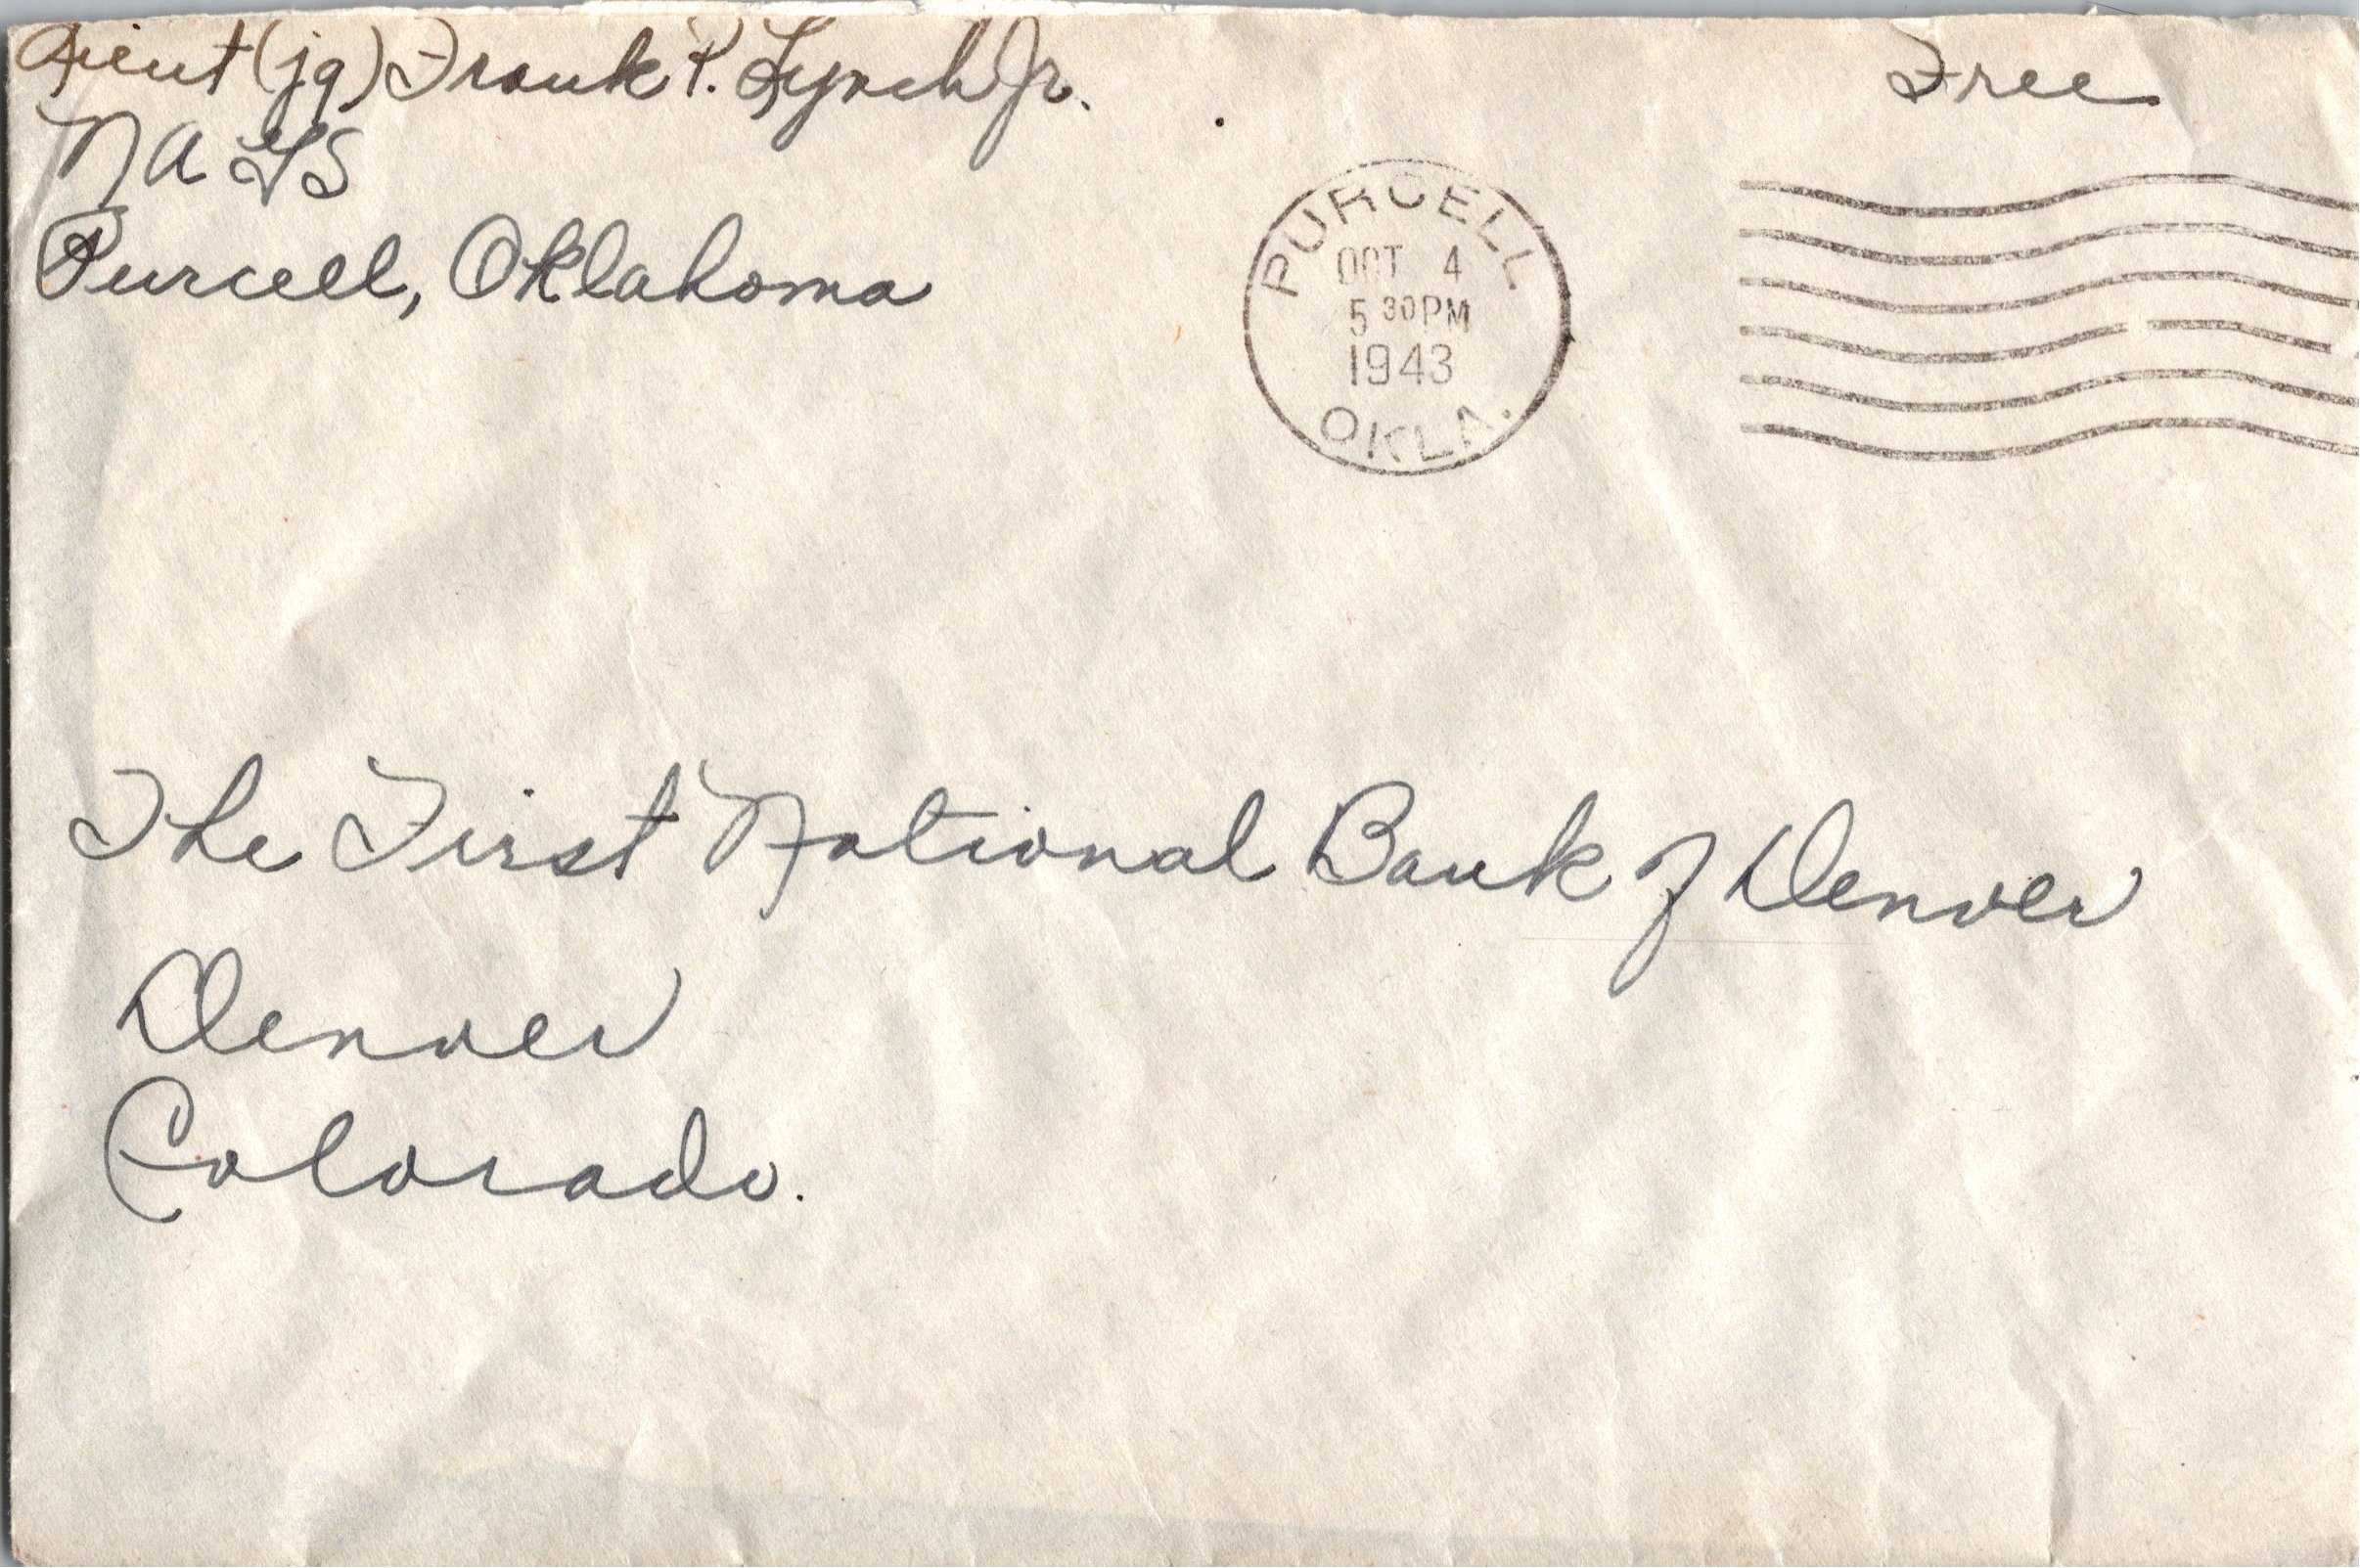 Lieut (jg) Frank P. Lynch Jr.
NAGS
Purcell, Oklahoma
Free
PURCELL
OCT 4
5 30 PM
1943
OKLA.
The First National Bank of Denver
Denver
Colorado.